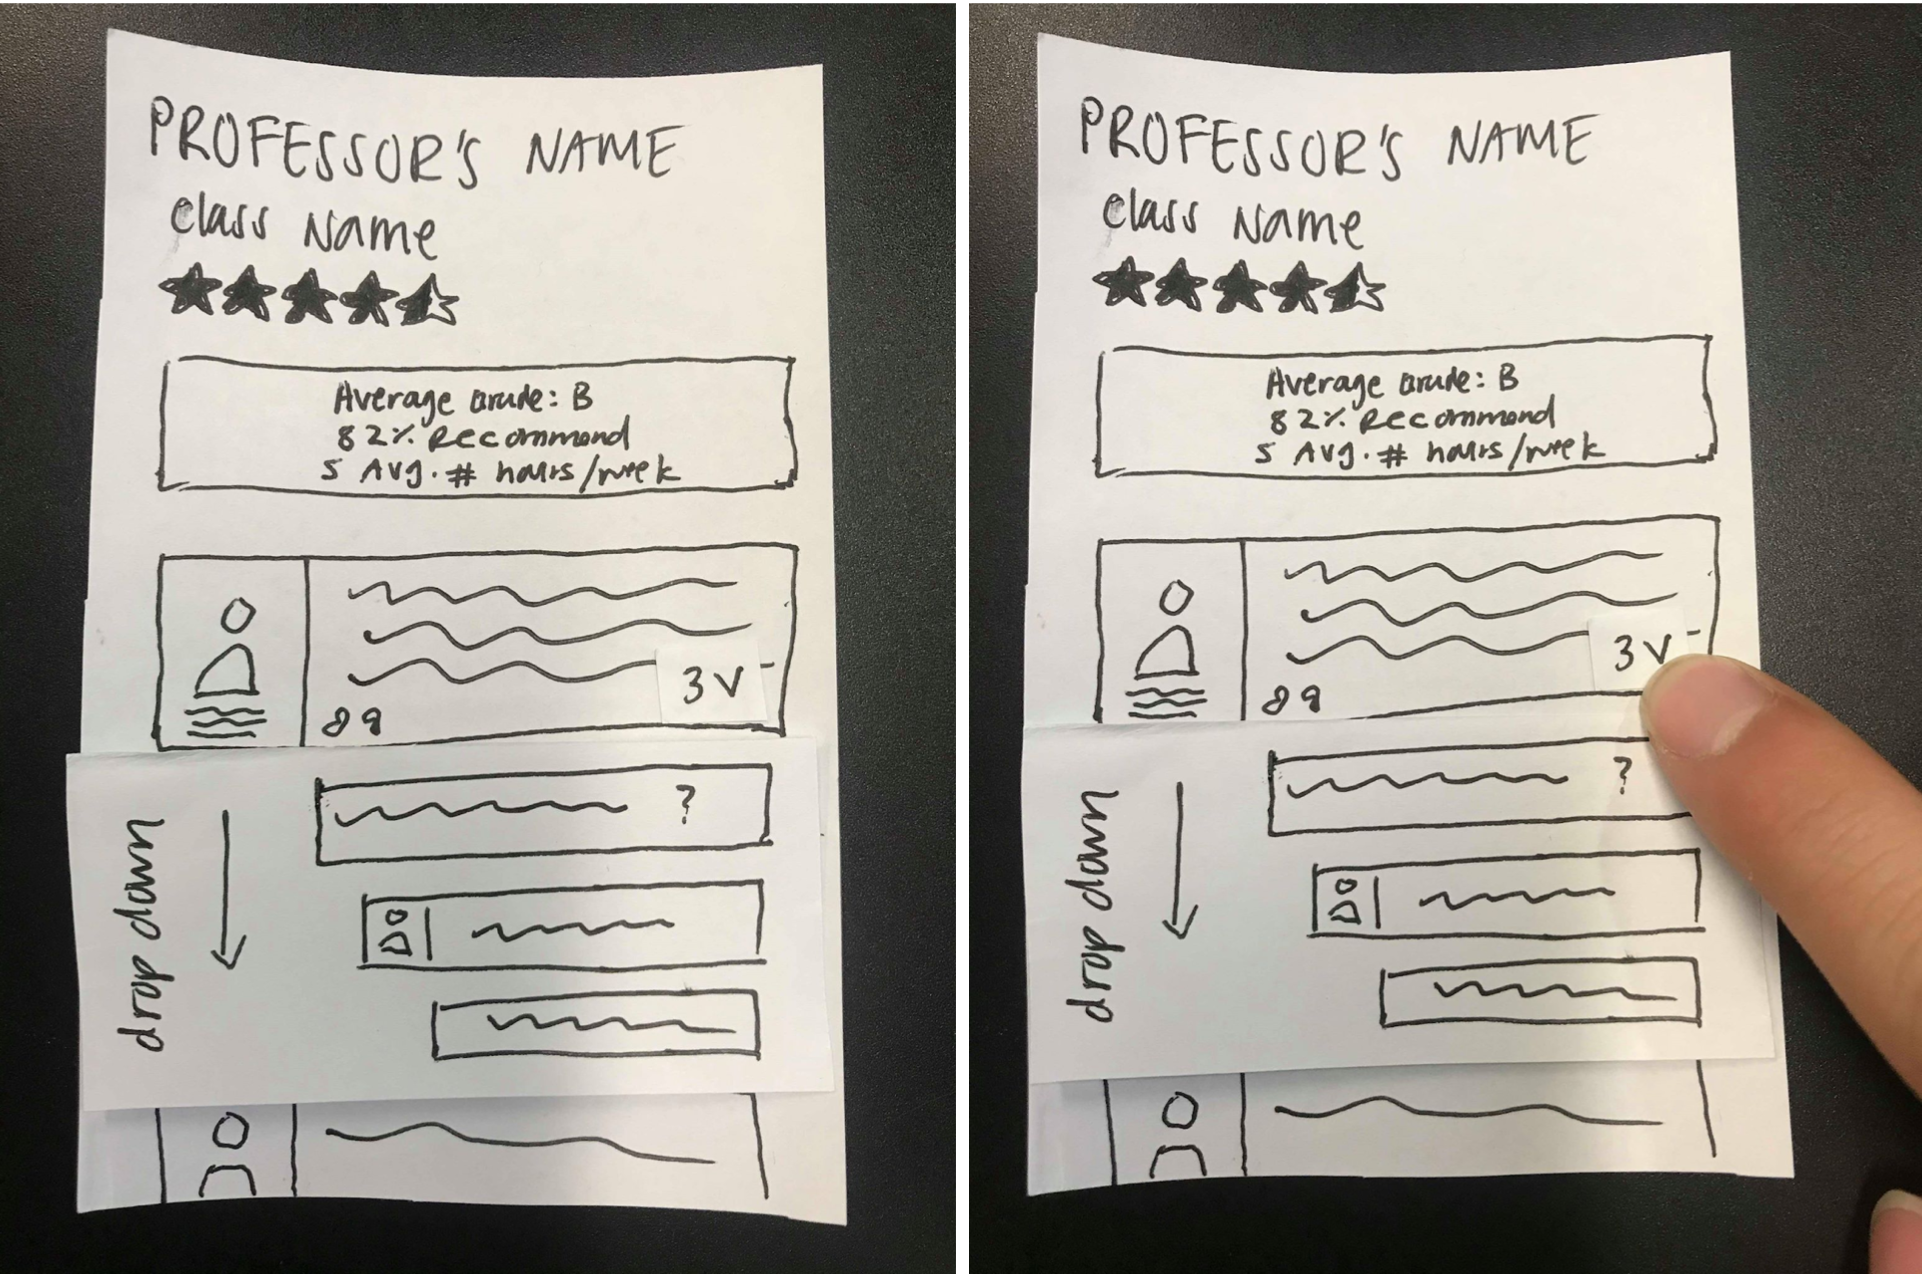 PROFESSOR'S NAME
Class Name
Average Grade: B
82% Recommend
5 Avg. # hours/week
3 V
?
drop down
PROFESSOR'S NAME
Class Name
Average Grade: B
82% Recommend
5 Avg. # hours/week
3 V
?
drop down